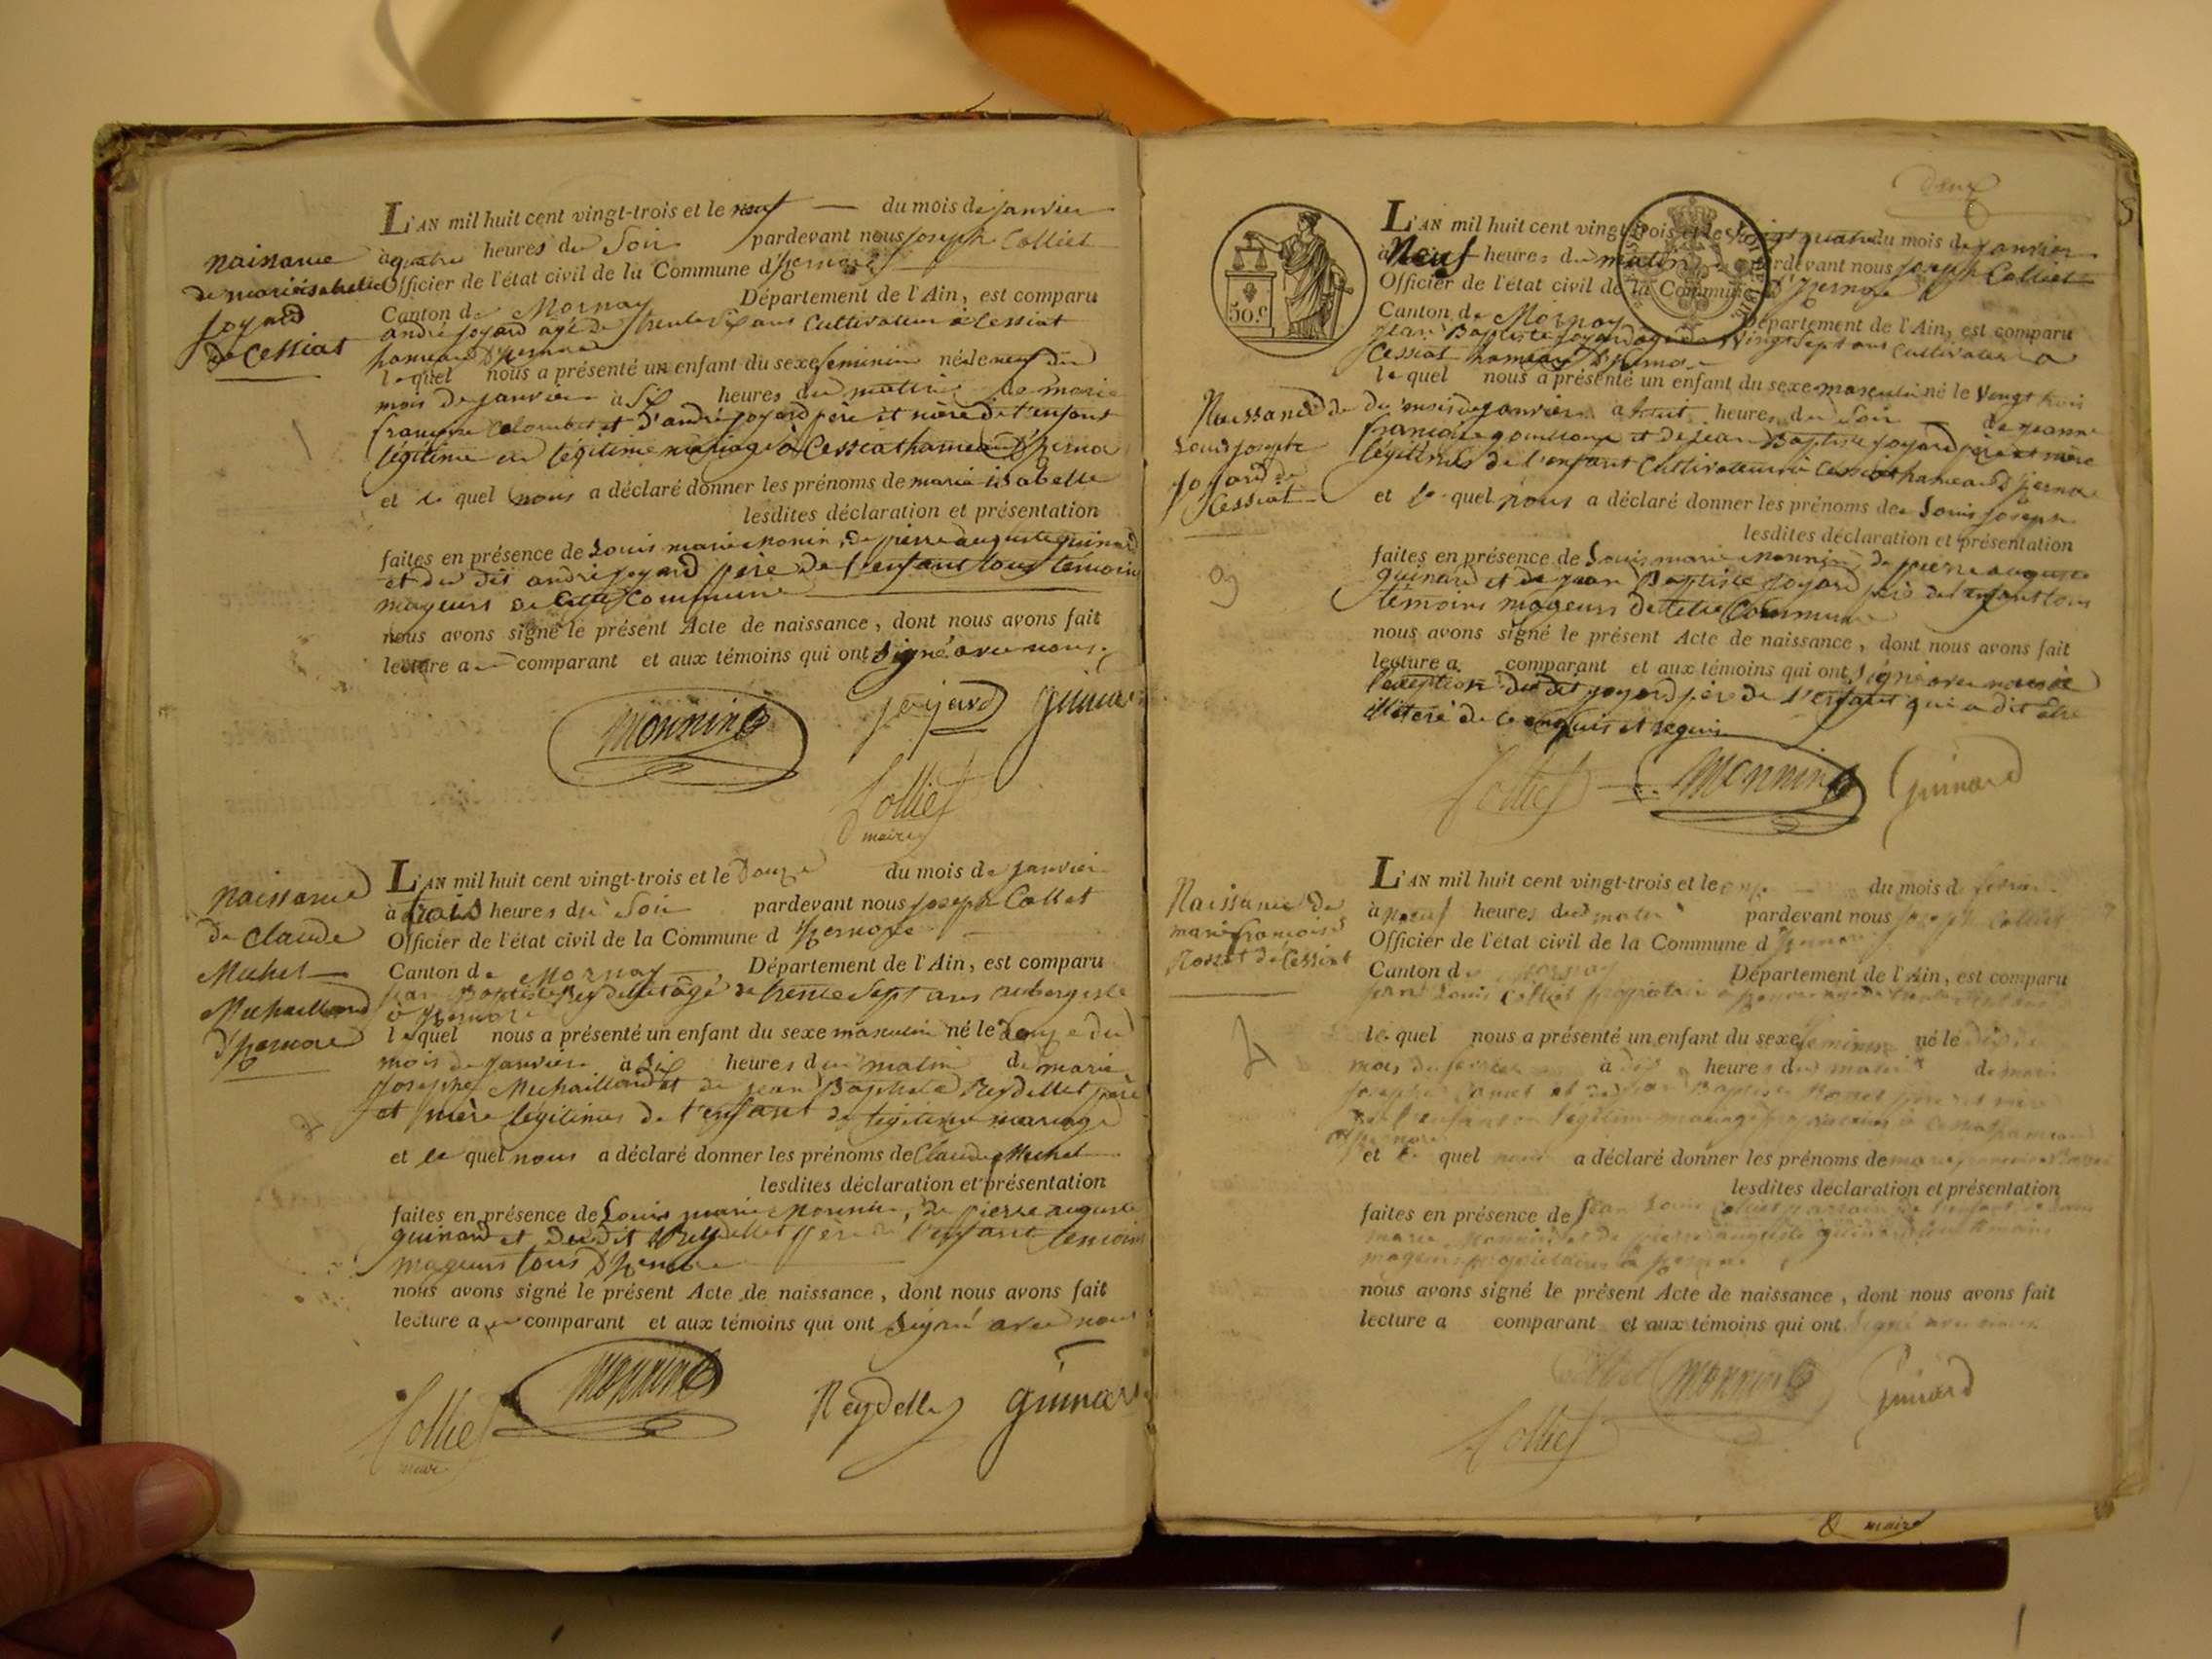 naissance
de marie isabelle
Joyard
de Cessiat
L'AN mil huit cent vingt-trois et le neuf — du mois de janvier
à quatre heures du Soir pardevant nous joseph Colliet
Officier de l'état civil de la Commune d'Izernore
Canton de Mornay Département de l'Ain, est comparu
andré joyard agé de trente six ans Cultivateur à Cessiat
hameau D'Izernore
le quel nous a présenté un enfant du sexe feminin né le neuf du
mois de janvier à Six heures du matin de marie
françoise Colombet et d'andré joyard père et mère de l'enfant
légitime en légitime mariage à Cessiat hameau D'Izernore
et le quel nous a déclaré donner les prénoms de marie isabelle
lesdites déclaration et présentation
faites en présence de Louis marie monin, de pierre auguste guinard
et du dit andré joyard père de l'enfant tous témoins
mageurs de cette Commune
nous avons signé le présent Acte de naissance, dont nous avons fait
lecture au comparant et aux témoins qui ont Signé avec nous.
monnin joyard guinard
Colliet
maire
naissance
de Claude
Michel
Michailland
d'Izernore
L'AN mil huit cent vingt-trois et le Douze du mois de janvier
à trois heures du Soir pardevant nous joseph Colliet
Officier de l'état civil de la Commune d Izernore
Canton de Mornay Département de l'Ain, est comparu
jean Baptiste Reydellet agé de trente Sept ans aubergiste
à Izernore
le quel nous a présenté un enfant du sexe masculin né le Douze du
mois de janvier à Six heures du matin de marie
Josephe Michailland et de jean Baptiste Reydellet père
et mère légitimes de l'enfant de légitime mariage
et le quel nous a déclaré donner les prénoms de Claude Michel
lesdites déclaration et présentation
faites en présence de Louis marie monnin, de pierre auguste
guinard et du dit Reydellet père de l'enfant temoins
mageurs tous D'Izernore
nous avons signé le présent Acte de naissance, dont nous avons fait
lecture au comparant et aux témoins qui ont Signé avec nous
Colliet monnin Reydellet guinard
maire
Deux
50.c
Naissance de
Louis joseph
joyard de
Cessiat
3
L'AN mil huit cent vingt-trois et le vingt quatre du mois de janvier
à Neuf heures du matin pardevant nous joseph Colliet
Officier de l'état civil de la Commune d'Izernore
Canton de Mornay Département de l'Ain, est comparu
jean Baptiste joyard agé de vingt Sept ans Cultivateur a
Cessiat hameau D'Izernore
le quel nous a présenté un enfant du sexe masculin né le Vingt trois
du mois de janvier à huit heures du Soir de jeanne
françoise et de jean Baptiste joyard père et mère
légitimes de l'enfant Cultivateur à Cessiat hameau d'Izernore
et le quel nous a déclaré donner les prénoms de Louis joseph
lesdites déclaration et présentation
faites en présence de Louis marie monnin, de pierre auguste
guinard et de jean Baptiste joyard père de l'enfant tous
témoins mageurs de cette Commune
nous avons signé le présent Acte de naissance, dont nous avons fait
lecture a comparant et aux témoins qui ont Signé avec nous à
l'exception du dit joyard père de l'enfant qui a dit être
illiteré de ce enquis et requis
Colliet monnin guinard
Naissance de
marie françoise
de Cessiat
4
L'AN mil huit cent vingt-trois et le du mois de fevrier
à neuf heures du matin pardevant nous joseph Colliet
Officier de l'état civil de la Commune d Izernore
Canton de Mornay Département de l'Ain, est comparu
jean Louis Colliet propriétaire a Izernore agé de trente
le quel nous a présenté un enfant du sexe feminin né le dix du
mois de fevrier à dix heures du matin de marie
josephe et de jean Baptiste père et mère
de l'enfant en légitime mariage à Cessiat hameau
d'Izernore
et le quel nous a déclaré donner les prénoms de marie françoise
lesdites déclaration et présentation
faites en présence de jean Louis Colliet parrain de l'enfant de Louis
marie Monnin et de pierre auguste guinard tous temoins
mageurs propriétaires à Izernore
nous avons signé le présent Acte de naissance, dont nous avons fait
lecture a comparant et aux témoins qui ont Signé avec nous
Colliet monnin guinard
Colliet
maire